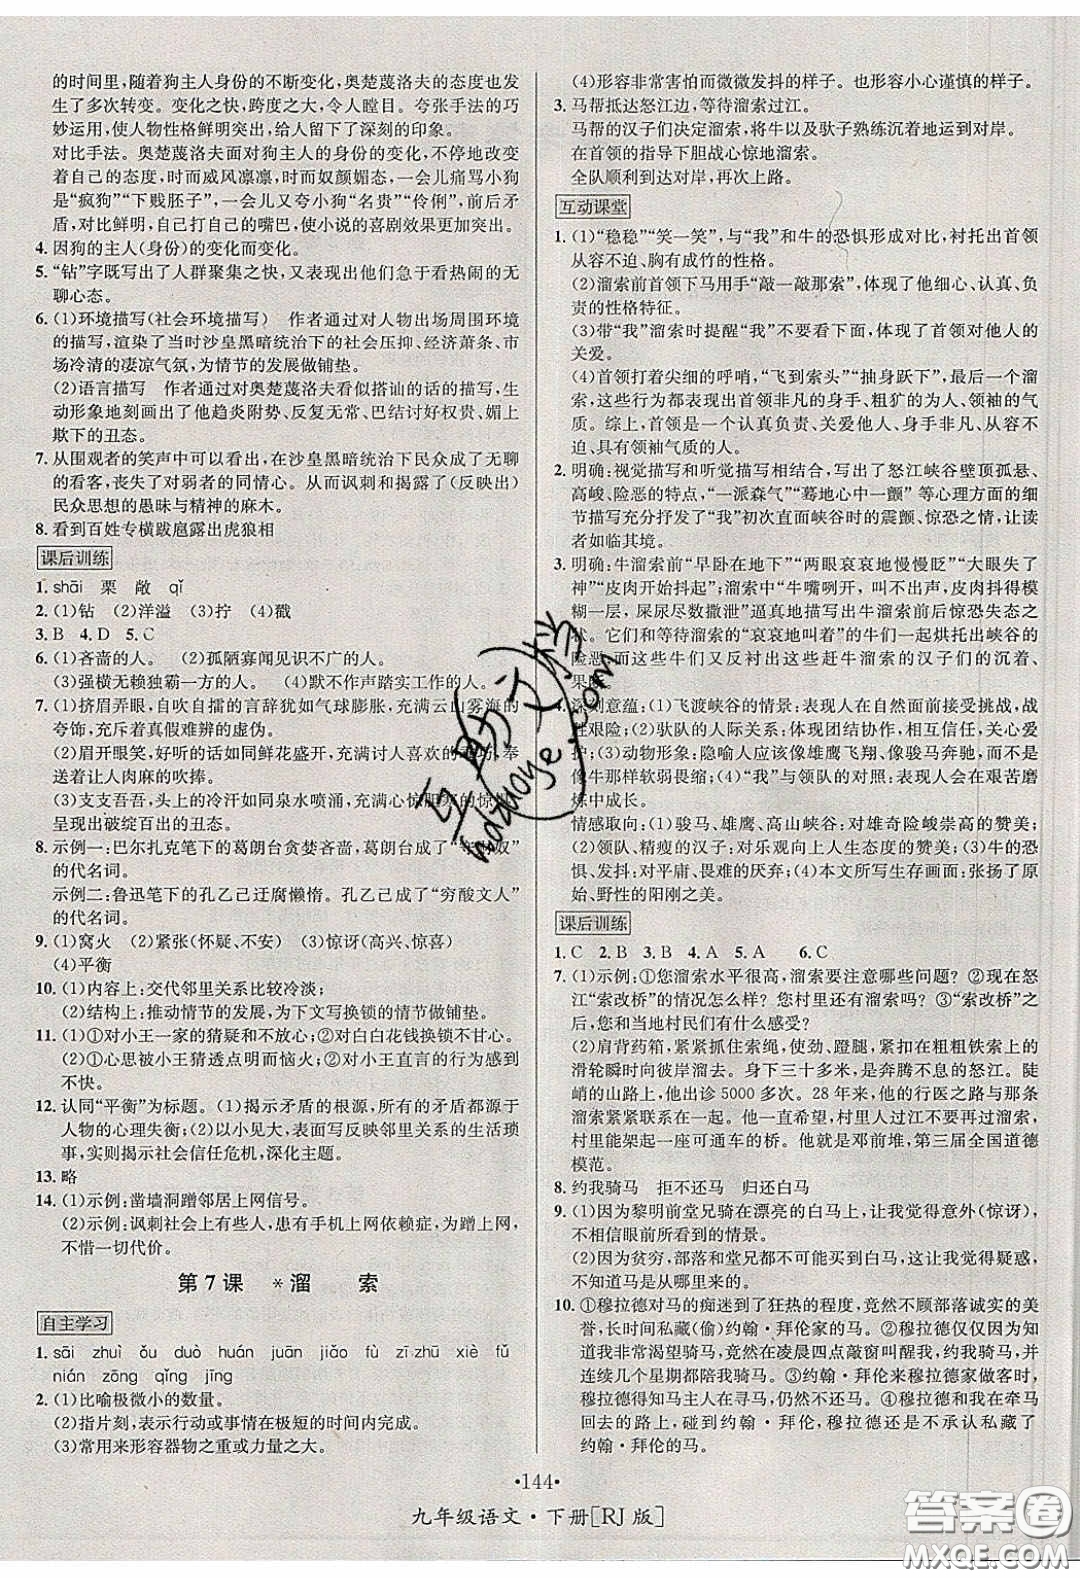 的时间里,随着狗主人身份的不断变化,奥楚蔑洛夫的态度也发
生了多次转变。变化之快,跨度之大,令人瞠目。夸张手法的巧
妙运用,使人物性格鲜明突出,给人留下了深刻的印象。
对比手法。奥楚蔑洛夫面对狗主人的身份的变化,不停地改变
着自己的态度,时而威风凛凛,时而奴颜媚态,一会儿痛骂小狗
是“疯狗”“下贱胚子”,一会儿又夸小狗“名贵”“伶俐”。前后矛
盾,对比鲜明,自己打自己的嘴巴,使小说的喜剧效果更加突出。
4. 因狗的主人(身份)的变化而变化。
5. “钻”字既写出了人群聚集之快,又表现出他们急于看热闹的无
聊心态。
6. (1)环境描写(社会环境描写) 作者通过对人物出场周围环境
的描写,渲染了当时沙皇黑暗统治下的社会压抑、经济萧条、市
场冷清的凄凉气氛,为情节的发展做铺垫。
(2)语言描写 作者通过对奥楚蔑洛夫看似搭讪的话的描写,生
动形象地刻画出了他趋炎附势、反复无常、巴结讨好权贵、媚上
欺下的丑态。
7. 从围观者的笑声中可以看出,在沙皇黑暗统治下民众成了无聊
的看客,丧失了对弱者的同情心。从而讽刺和揭露了(反映出)
民众思想的愚昧与精神的麻木。
8. 看到百姓专横跋扈露出虎狼相
课后训练
1. shāi 栗 敞 qǐ
2. (1)钻 (2)洋溢 (3)拧 (4)戳
3. B 4. D 5. C
6. (1)吝啬的人。 (2)孤陋寡闻见识不广的人。
(3)强横无赖独霸一方的人。 (4)默不作声踏实工作的人。
7. (1)挤眉弄眼,自吹自擂的言辞犹如气球膨胀,充满云山雾海的
夸饰,充斥着真假难辨的虚伪。
(2)眉开眼笑,好听的话如同鲜花盛开,充满讨人喜欢的 功,奉
送着让人肉麻的吹捧。
(3)支支吾吾,头上的冷汗如同泉水喷涌,充满心惊胆寒的惊
呈现出破绽百出的丑态。
8. 示例一:巴尔扎克笔下的葛朗台贪婪吝啬,葛朗台成了“ 奴”
的代名词。
示例二:鲁迅笔下的孔乙己迂腐懒惰。孔乙己成了“穷酸文人”
的代名词。
9. (1)窝火 (2)紧张(怀疑、不安) (3)惊讶(高兴,惊喜)
(4)平衡
10. (1)内容上:交代邻里关系比较冷淡;
(2)结构上:推动情节的发展,为下文写换锁的行为做铺垫。
11. (1)①对小王一家的猜疑和不放心;②对白白花钱换锁不甘心。
(2)①心思被小王猜透点明而恼火;②对小王直言的行为感到
不快。
12. 认同“平衡”为标题。(1)揭示矛盾的根源,所有的矛盾都源于
人物的心理失衡;(2)以小见大,表面写反映邻里关系的生活琐
事,实则揭示社会信任危机,深化主题。
13. 略
14. (1)示例:凿墙洞蹭邻居上网信号。
(2)示例:讽刺社会上有些人,患有手机上网依赖症,为蹭上网,
不惜一切代价。
第7课 *溜 索
自主学习
1. sāi zhuì ǒu duò huán juān jiǎo fù zī zhū xiè fǔ
nián zōng qǐng jīng
2. (1)比喻极微小的数量。
(2)指片刻,表示行动或事情在极短的时间内完成。
(3)常用来形容器物之重或力量之大。
(4)形容非常害怕而微微发抖的样子。也形容小心谨慎的样子。
3. 马帮抵达怒江边,等待溜索过江。
马帮的汉子们决定溜索,将牛以及驮子熟练沉着地运到对岸。
在首领的指导下胆战心惊地溜索。
全队顺利到达对岸,再次上路。
互动课堂
1. (1)“稳稳”“笑一笑”,与“我”和牛的恐惧形成对比,衬托出首领
从容不迫、胸有成竹的性格。
(2)溜索前首领下马用手“敲一敲那索”,体现了他细心、认真、负
责的性格特征。
(3)带“我”溜索时提醒“我”不要看下面,体现了首领对他人的
关爱。
(4)首领打着尖细的呼哨,“飞到索头”“抽身跃下”,最后一个溜
索,这些行为都表现出首领非凡的身手、粗犷的为人、领袖的气
质。综上,首领是一个认真负责、关爱他人、身手非凡、从容不
迫、具有领袖气质的人。
2. 明确:视觉描写和听觉描写相结合,写出了怒江峡谷壁顶孤悬、
高峻、险恶的特点,“一派森气”“蓦地心中一颤”等心理方面的细
节描写充分抒发了“我”初次直面峡谷时的震颤、惊恐之情,让读
者如临其境。
3. 明确:牛溜索前“早卧在地下”“两眼哀哀地慢慢眨”“大眼失了
神”“皮肉开始抖起”;溜索中“牛嘴咧开,叫不出声,皮肉抖得模
糊一层,屎尿尽数撒泄”逼真地写出了牛溜索前后惊恐失态之
状。它们和等待溜索的“哀哀地叫着”的牛们一起烘托出峡谷的
险恶;而这些牛们又反衬出这些赶牛溜索的汉子们的沉着、
果
深刻意蕴:(1)飞渡峡谷的情景:表现人在自然面前迎接挑战,战
胜艰险;(2)驮队的人际关系:体现团结协作,相互信任、关心爱
护;(3)动物形象:隐喻人应该像雄鹰飞翔、像骏马奔驰,而不能
像牛那样软弱畏缩;(4)“我”与领队的对照:表现人会在艰苦磨
炼中成长。
情感取向:(1)骏马、雄鹰、高山峡谷:对雄奇险峻崇高的赞美;
(2)领队、精瘦的汉子:对乐观向上人生态度的赞美;(3)牛的恐
惧、发抖:对平庸、畏葸的厌弃;(4)本文所写生存画面:张扬了原
始、野性的阳刚之美。
课后训练
1. C 2. B 3. B 4. A 5. A 6. C
7. (1)示例:①您溜索水平很高,溜索要注意哪些问题?②现在怒
江“索改桥”的情况怎么样?您村里还有溜索吗?③“索改桥”之
后,您和当地村民们有什么感受?
(2)肩背药箱,紧紧抓住索绳,使劲、蹬腿,紧紧扣在粗粗铁索上的
滑轮瞬间从这岸溜去。身下三十多米,是奔腾不息的怒江。陡
峭的山路上,他出诊5000多次。28年来,他的行医之路与那条
溜索紧紧联系在一起。他一直希望,村里人过江不要再过溜索,
村里能架起一座可通车的桥。他就是邓前堆,第三届全国道德
模范。
8. 约我骑马 拒不还马 归还白马
9. (1)因为黎明前堂兄骑在漂亮的白马上,让我觉得意外(惊讶),
不相信眼前所看到的情景。
(2)因为贫穷,部落和堂兄都不可能买到白马,这让我觉得疑惑,
不知道马是从哪里来的。
10. ①穆拉德对马的痴迷到了狂热的程度,竟然不顾部落诚实的美
誉,长时间私藏(偷)约翰·拜伦家的马。②穆拉德仅仅因为知
道我非常渴望骑马,竟然在凌晨四点敲窗叫醒我,约我骑马,并
连续几个星期都一起骑马。③拜伦来穆拉德家做客,穆拉德
明明知道马主人在寻马,仍然不还马。④穆拉德和我在牵马
回去的路上,碰到约翰·拜伦,穆拉德还是不承认私藏了
约翰·拜伦的马。
·144·
九年级语文·下册[RJ版]
互助文档
hdzuoye.com
答案圈
MXQE.COM